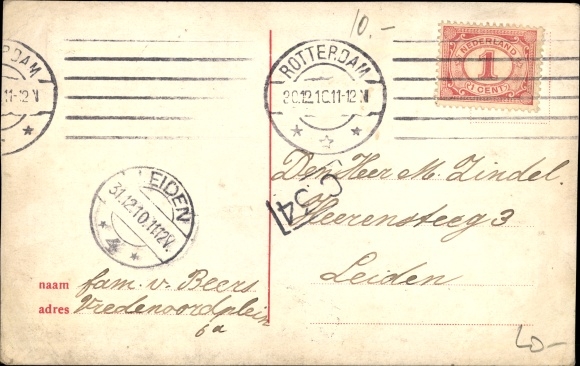 10.-
ROTTERDAM
11-12 V
ROTTERDAM
30.12.10.11-12 V
NEDERLAND
1
1 CENT
LEIDEN
31.12.10.11-12V.
4
C 34
Den Heer M. Zindel.
Heerensteeg 3
Leiden
naam fam. v. Beers
adres Vredenoordplein
6a